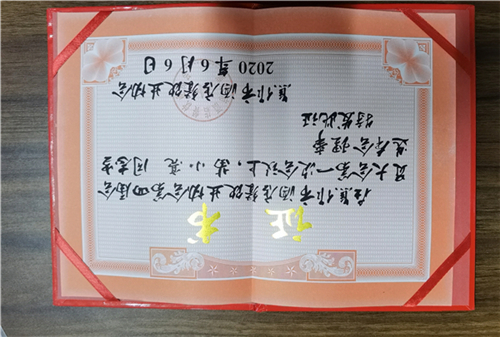 证书
在焦作市酒店餐饮业协会第四届会
员大会第一次会议上，苗小亮 同志当
选本会理事
特发此证
焦作市酒店餐饮业协会
2020年6月6日